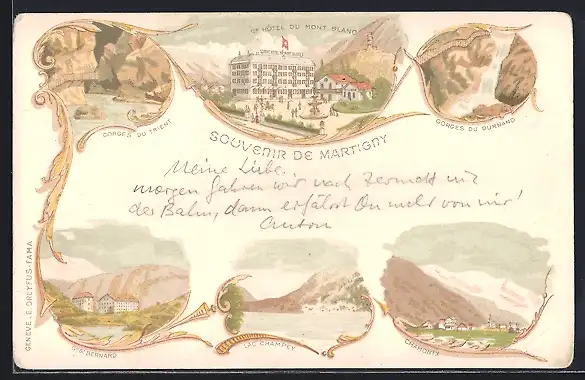 Gd HÔTEL DU MONT BLANC
GORGES DU TRIENT
GORGES DU DURNAND
SOUVENIR DE MARTIGNY
Meine Liebe,
morgen fahren wir nach Zermatt mit
der Bahn, dann erfährst Du mehr von mir!
Anton
GENEVE - E. DREYFUS-FAMA
ST BERNARD
LAC CHAMPEX
CHAMONIX